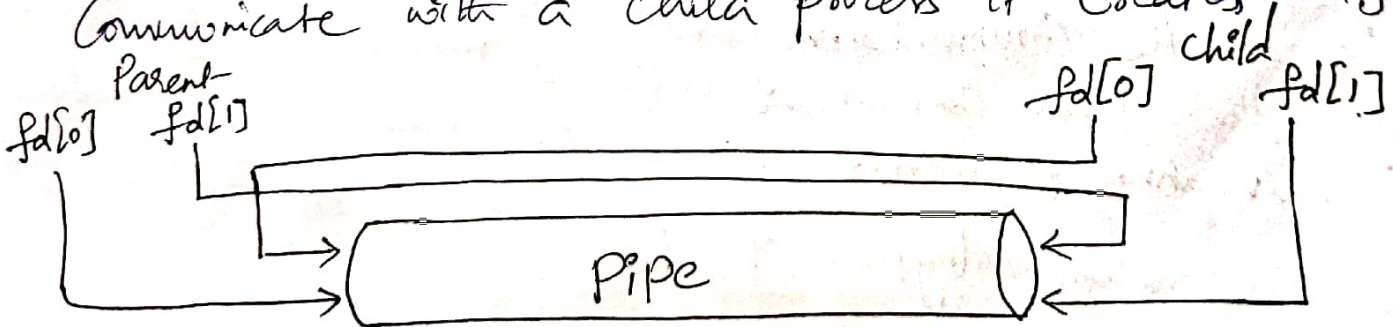 Communicate with a child process it creates,
Parent child
fd[0] fd[1] fd[0] fd[1]
Pipe